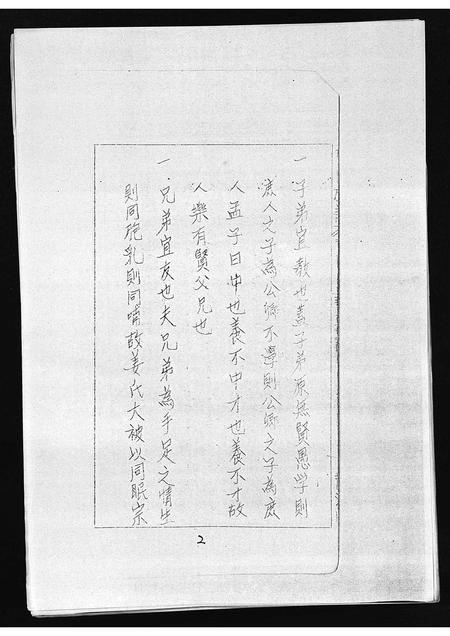 一子弟宜教也蓋子弟原無賢愚學則
庶人之子為公卿不學則公卿之子為庶
人孟子曰中也養不中才也養不才故
人樂有賢父兄也
一兄弟宜友也夫兄弟為手足之情生
則同胞乳則同哺故姜氏大被以同眠宗
2